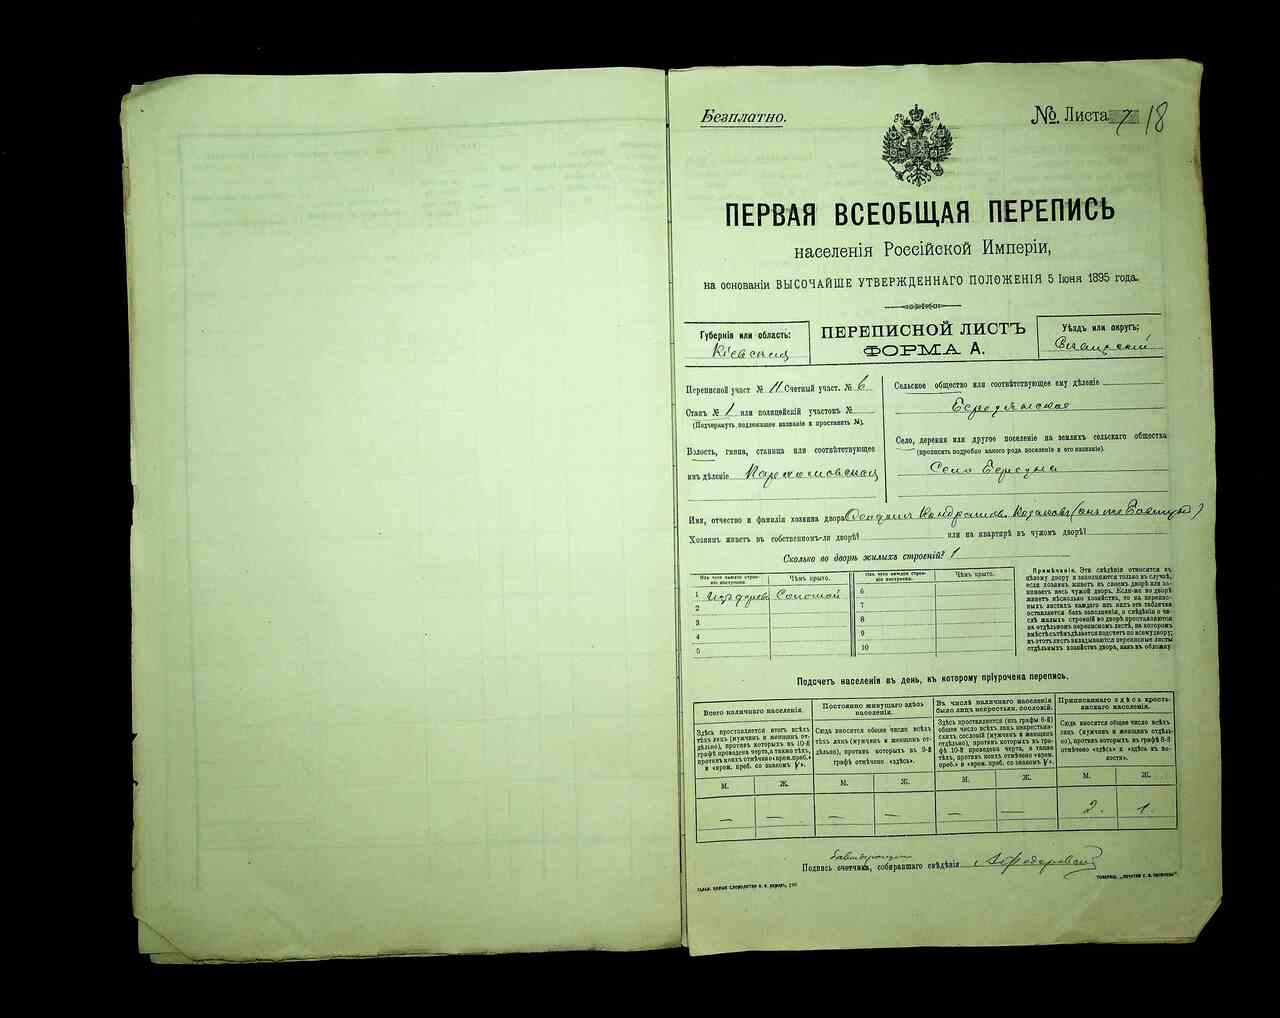 Безплатно.
№. Листа 7 18
ПЕРВАЯ ВСЕОБЩАЯ ПЕРЕПИСЬ
населенія Россійской Имперіи,
на основаніи ВЫСОЧАЙШЕ УТВЕРЖДЕННАГО ПОЛОЖЕНІЯ 5 Іюня 1895 года.
Губернія или область:
Кіевская
ПЕРЕПИСНОЙ ЛИСТЪ
ФОРМА А.
Уѣздъ или округъ:
Переписной участ. № 11 Счетный участ. № 6
Станъ № 1 или полицейскій участокъ №
(Подчеркнуть подлежащее названіе и проставить №).
Волость, гмина, станица или соотвѣтствующее
имъ дѣленіе
Сельское общество или соотвѣтствующее ему дѣленіе
Село, деревня или другое поселеніе на земляхъ сельскаго общества
(прописать подробно какого рода поселеніе и его названіе).
Село
Имя, отчество и фамилія хозяина двора
Хозяинъ живетъ въ собственномъ-ли дворѣ? или на квартирѣ въ чужомъ дворѣ?
Сколько во дворѣ жилыхъ строеній? 1
Изъ чего каждое строеніе построено. Чѣмъ крыто.
1 Изъ дерева Соломой
2
3
4
5
Изъ чего каждое строеніе построено. Чѣмъ крыто.
6
7
8
9
10
Примѣчаніе. Эти свѣдѣнія относятся къ
цѣлому двору и заполняются только въ случаѣ,
если хозяинъ живетъ въ своемъ дворѣ или занимаетъ
весь чужой дворъ. Если-же во дворѣ
живетъ нѣсколько хозяйствъ, то на переписныхъ
листахъ каждаго изъ нихъ эта табличка
оставляется безъ заполненія, а свѣдѣнія о числѣ
жилыхъ строеній во дворѣ проставляются
на отдѣльномъ переписномъ листѣ, на которомъ
вмѣстѣ съ тѣмъ дѣлается подсчетъ по всему двору;
въ этотъ листъ вкладываются переписные листы
отдѣльныхъ хозяйствъ двора, какъ въ обложку.
Подсчетъ населенія въ день, къ которому пріурочена перепись.
Всего наличнаго населенія.
Здѣсь проставляется итогъ всѣхъ
тѣхъ лицъ (мужчинъ и женщинъ отдѣльно),
противъ которыхъ въ 10-й
графѣ проведена черта, а также тѣхъ,
противъ коихъ отмѣчено «врем. преб.»
и «врем. преб. со знакомъ V».
Постоянно живущаго здѣсь
населенія.
Сюда вносится общее число всѣхъ
тѣхъ лицъ (мужчинъ и женщинъ отдѣльно),
противъ которыхъ въ 9-й
графѣ отмѣчено «здѣсь».
Въ числѣ наличнаго населенія
было лицъ некрестьян. сословій.
Здѣсь проставляется (изъ графы 6-й)
общее число всѣхъ лицъ некрестьянскихъ
сословій (мужчинъ и женщинъ
отдѣльно), противъ которыхъ въ графѣ
10-й проведена черта, а также
тѣхъ, противъ коихъ отмѣчено «врем.
преб.» и «врем. преб. со знакомъ V».
Приписаннаго здѣсь крестьянскаго
населенія.
Сюда вносится общее число всѣхъ
лицъ (мужчинъ и женщинъ отдѣльно),
противъ которыхъ въ графѣ 8-й
отмѣчено «здѣсь» и «здѣсь въ волости».
М. Ж. М. Ж. М. Ж. М. Ж.
— — — — — — 2. 1.
Подпись счетчика, собиравшаго свѣдѣнія